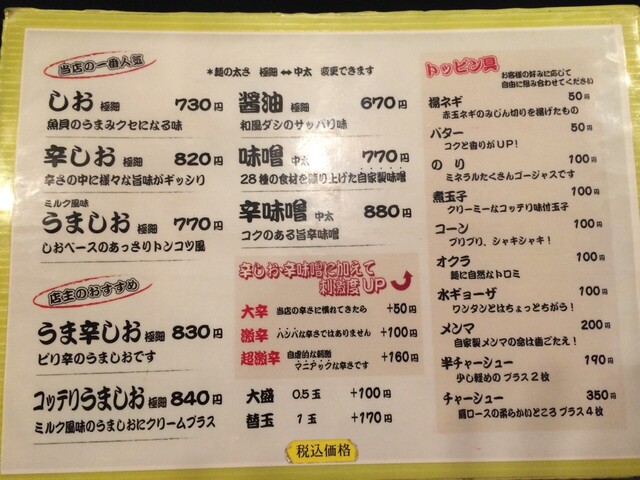 当店の一番人気
*麺の太さ 極細 ↔ 中太 変更できます
しお 極細 730円
魚貝のうまみクセになる味
辛しお 極細 820円
辛さの中に様々な旨味がギッシリ
ミルク風味
うましお 極細 770円
しおベースのあっさりトンコツ風
醤油 極細 670円
和風ダシのサッパリ味
味噌 中太 770円
28種の食材を練り上げた自家製味噌
辛味噌 中太 880円
コクのある旨辛味噌
店主のおすすめ
うま辛しお 極細 830円
ピリ辛のうましおです
コッテリうましお 極細 840円
ミルク風味のうましおにクリームプラス
辛しお・辛味噌に加えて
刺激度UP
大辛 当店の辛さに慣れてきたら +50円
激辛 ハンパな辛さではありません +100円
超激辛 自虐的な刺激 マニアックな辛さです +160円
大盛 0.5玉 +100円
替玉 1玉 +170円
トッピン具
お客様の好みに応じて
自由に組み合わせてください
揚ネギ 50円
赤玉ネギのみじん切りを揚げたもの
バター 50円
コクと香りがUP!
のり 100円
ミネラルたくさんゴージャスです
煮玉子 100円
クリーミーなコッテリ味付玉子
コーン 100円
プリプリ、シャキシャキ!
オクラ 100円
麺に自然なトロミ
水ギョーザ 100円
ワンタンとはちょっとちがう!
メンマ 200円
自家製メンマの命は歯ごたえ!
半チャーシュー 190円
少し軽めの プラス2枚
チャーシュー 350円
肩ロースの柔らかいところ プラス4枚
税込価格